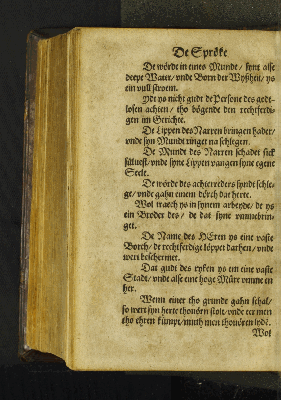 De Spröke
De wörde in eines Munde / synt alse
deepe Water / vnde Born der Wyßheit / ys
ein vull stroem.
Ydt ys nicht gudt de Persone des godt-
losen achten / tho bögende den rechtferdi-
gen im Gerichte.
De Lippen des Narren bringen hader /
vnde syn Mundt ringet na schlegen.
De Mundt des Narren schadet sick
süluest / vnde syne Lippen vangen syne egene
Seele.
De wörde des achterreders synde schle-
ge / vnde gahn einem dörch dat herte.
Wol traech ys in synem arbeyde / de ys
ein Broder des / de dat syne vmmebrin-
get.
De Name des HEren ys eine vaste
Borch / de rechtferdige löppet darhen / vnde
wert beschermet.
Dat gudt des ryken ys em eine vaste
Stadt / vnde alse eine hoge Müre vmme en
her.
Wenn einer tho grunde gahn schal /
so wert syn herte thouörn stolt / vnde eer men
tho ehren kumpt / muth men thouören
Wol